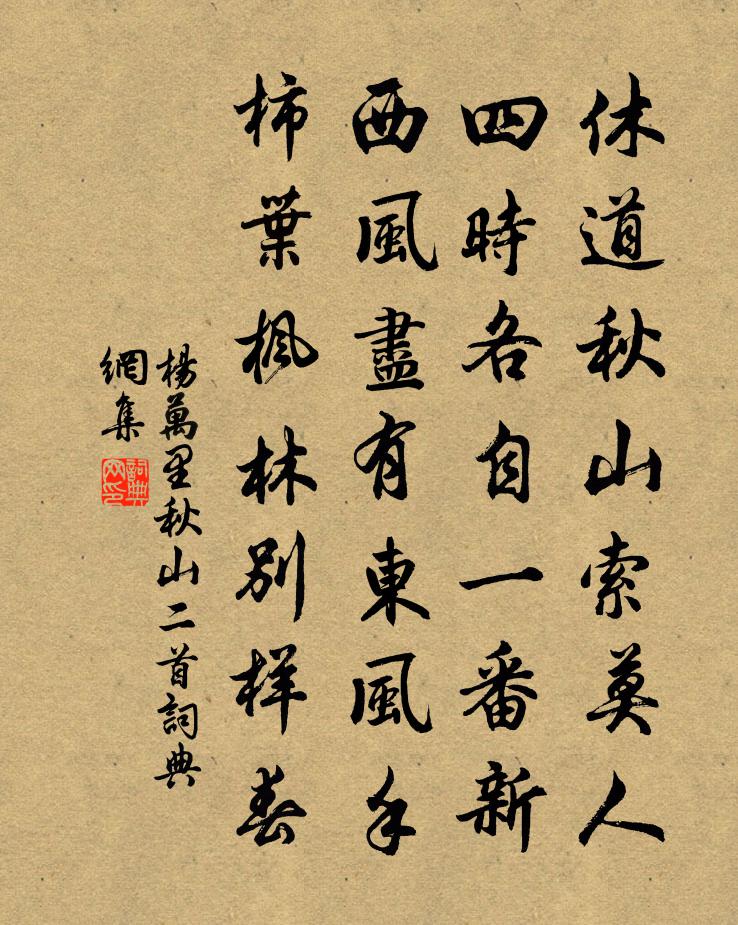 休道秋山索莫人
四時各自一番新
西風盡有東風手
柿葉楓林別樣春
楊萬里秋山二首詞典
網集
詞典網印